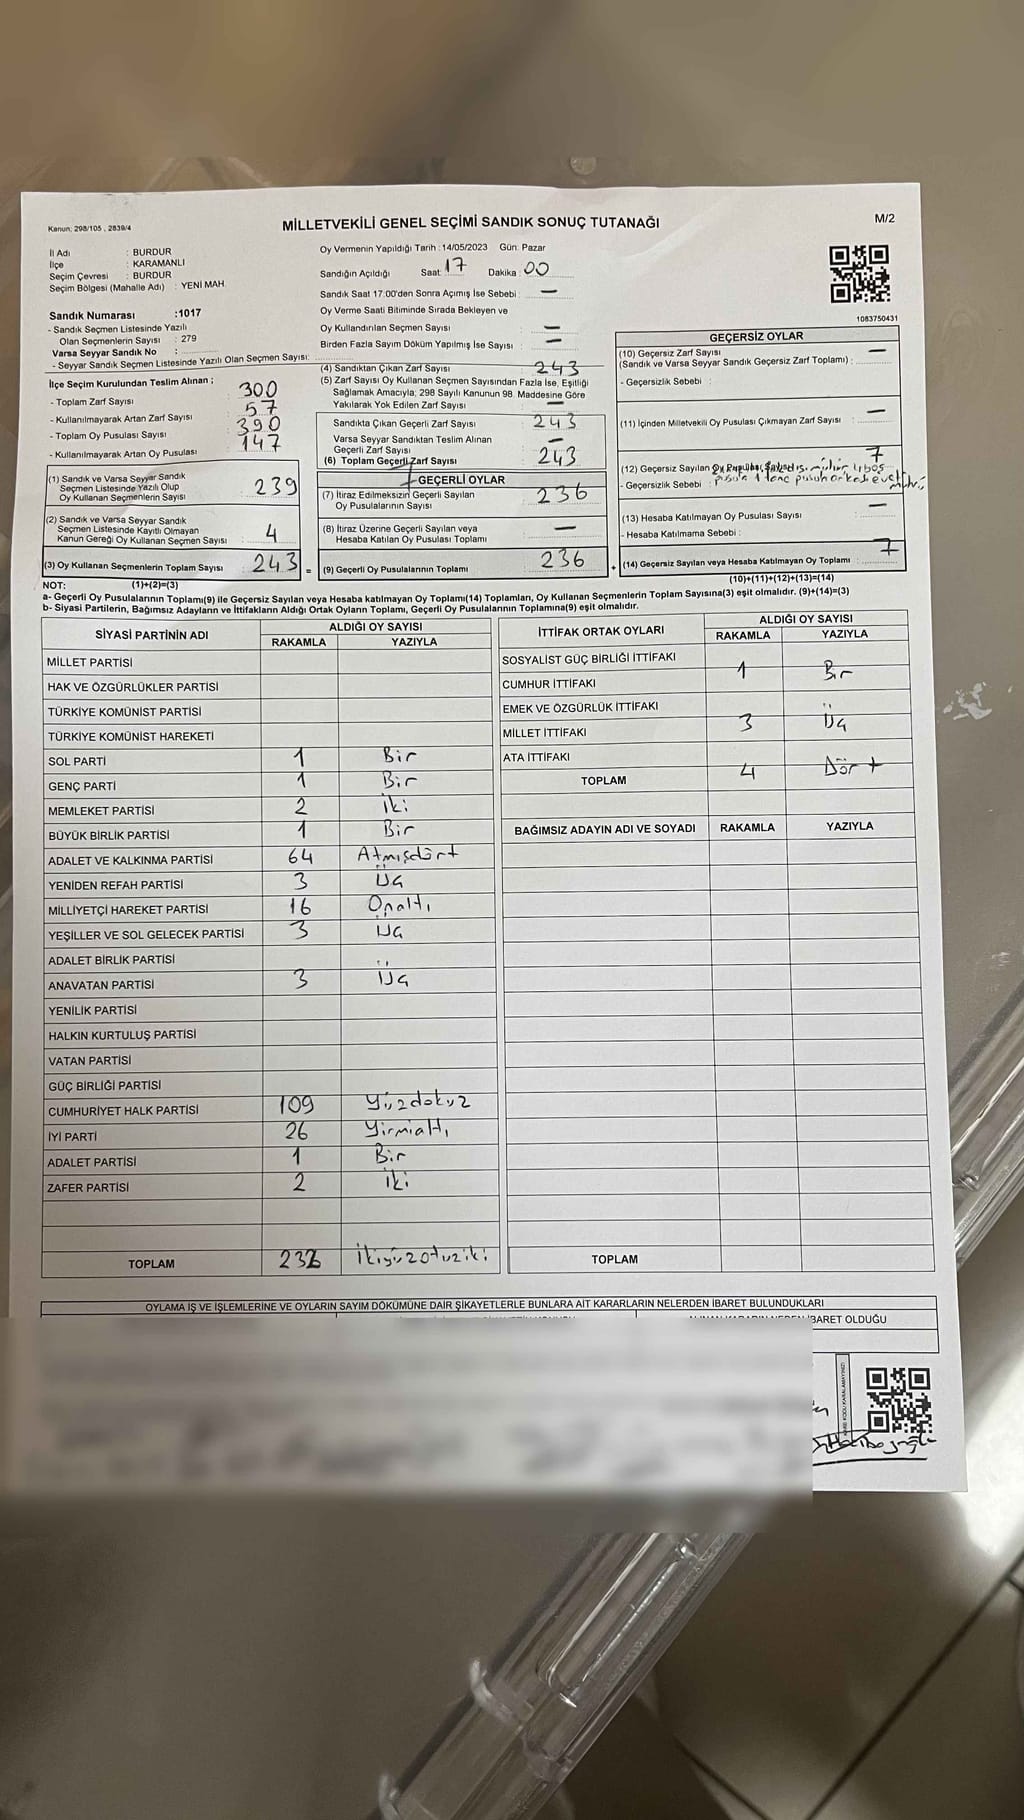 Kanun; 298/105 , 2839/4
MİLLETVEKİLİ GENEL SEÇİMİ SANDIK SONUÇ TUTANAĞI
M/2
İl Adı : BURDUR
İlçe : KARAMANLI
Seçim Çevresi : BURDUR
Seçim Bölgesi (Mahalle Adı) : YENİ MAH.
Oy Vermenin Yapıldığı Tarih :14/05/2023 Gün: Pazar
Sandığın Açıldığı Saat: 17 Dakika : 00
Sandık Saat 17.00'den Sonra Açımış İse Sebebi : —
Oy Verme Saati Bitiminde Sırada Bekleyen ve
Oy Kullandırılan Seçmen Sayısı —
Birden Fazla Sayım Döküm Yapılmış İse Sayısı : —
1083750431
Sandık Numarası :1017
- Sandık Seçmen Listesinde Yazılı
Olan Seçmenlerin Sayısı : 279
Varsa Seyyar Sandık No :
- Seyyar Sandık Seçmen Listesinde Yazılı Olan Seçmen Sayısı:
İlçe Seçim Kurulundan Teslim Alınan ;
- Toplam Zarf Sayısı 300
- Kullanılmayarak Artan Zarf Sayısı 57
- Toplam Oy Pusulası Sayısı 390
- Kullanılmayarak Artan Oy Pusulası 147
(1) Sandık ve Varsa Seyyar Sandık
Seçmen Listesinde Yazılı Olup
Oy Kullanan Seçmenlerin Sayısı 239
(2) Sandık ve Varsa Seyyar Sandık
Seçmen Listesinde Kayıtlı Olmayan
Kanun Gereği Oy Kullanan Seçmen Sayısı 4
(3) Oy Kullanan Seçmenlerin Toplam Sayısı 243 =
(1)+(2)=(3)
(4) Sandıktan Çıkan Zarf Sayısı 243
(5) Zarf Sayısı Oy Kullanan Seçmen Sayısından Fazla İse, Eşitliği
Sağlamak Amacıyla; 298 Sayılı Kanunun 98. Maddesine Göre
Yakılarak Yok Edilen Zarf Sayısı —
Sandıkta Çıkan Geçerli Zarf Sayısı 243
Varsa Seyyar Sandıktan Teslim Alınan
Geçerli Zarf Sayısı —
(6) Toplam Geçerli Zarf Sayısı 243
GEÇERLİ OYLAR
(7) İtiraz Edilmeksizin Geçerli Sayılan
Oy Pusulalarının Sayısı 236
(8) İtiraz Üzerine Geçerli Sayılan veya
Hesaba Katılan Oy Pusulası Toplamı —
(9) Geçerli Oy Pusulalarının Toplamı 236 +
GEÇERSİZ OYLAR
(10) Geçersiz Zarf Sayısı —
(Sandık ve Varsa Seyyar Sandık Geçersiz Zarf Toplamı) :
- Geçersizlik Sebebi :
(11) İçinden Milletvekili Oy Pusulası Çıkmayan Zarf Sayısı —
(12) Geçersiz Sayılan Oy Pusulası Sayısı 7
- Geçersizlik Sebebi :
(13) Hesaba Katılmayan Oy Pusulası Sayısı —
- Hesaba Katılmama Sebebi :
(14) Geçersiz Sayılan veya Hesaba Katılmayan Oy Toplamı : 7
(10)+(11)+(12)+(13)=(14)
NOT:
a- Geçerli Oy Pusulalarının Toplamı(9) ile Geçersiz Sayılan veya Hesaba katılmayan Oy Toplamı(14) Toplamları, Oy Kullanan Seçmenlerin Toplam Sayısına(3) eşit olmalıdır. (9)+(14)=(3)
b- Siyasi Partilerin, Bağımsız Adayların ve İttifakların Aldığı Ortak Oyların Toplamı, Geçerli Oy Pusulalarının Toplamına(9) eşit olmalıdır.
SİYASİ PARTİNİN ADI ALDIĞI OY SAYISI
RAKAMLA YAZIYLA
MİLLET PARTİSİ
HAK VE ÖZGÜRLÜKLER PARTİSİ
TÜRKİYE KOMÜNİST PARTİSİ
TÜRKİYE KOMÜNİST HAREKETİ
SOL PARTİ 1 Bir
GENÇ PARTİ 1 Bir
MEMLEKET PARTİSİ 2 İki
BÜYÜK BİRLİK PARTİSİ 1 Bir
ADALET VE KALKINMA PARTİSİ 64 Atmışdört
YENİDEN REFAH PARTİSİ 3 Üç
MİLLİYETÇİ HAREKET PARTİSİ 16 Onaltı
YEŞİLLER VE SOL GELECEK PARTİSİ 3 Üç
ADALET BİRLİK PARTİSİ
ANAVATAN PARTİSİ 3 Üç
YENİLİK PARTİSİ
HALKIN KURTULUŞ PARTİSİ
VATAN PARTİSİ
GÜÇ BİRLİĞİ PARTİSİ
CUMHURİYET HALK PARTİSİ 109 Yüzdokuz
İYİ PARTİ 26 Yirmialtı
ADALET PARTİSİ 1 Bir
ZAFER PARTİSİ 2 İki
TOPLAM 232 İkiyüzotuziki
İTTİFAK ORTAK OYLARI ALDIĞI OY SAYISI
RAKAMLA YAZIYLA
SOSYALİST GÜÇ BİRLİĞİ İTTİFAKI
CUMHUR İTTİFAKI 1 Bir
EMEK VE ÖZGÜRLÜK İTTİFAKI
MİLLET İTTİFAKI 3 Üç
ATA İTTİFAKI
TOPLAM 4 Dört
BAĞIMSIZ ADAYIN ADI VE SOYADI RAKAMLA YAZIYLA
TOPLAM
OYLAMA İŞ VE İŞLEMLERİNE VE OYLARIN SAYIM DÖKÜMÜNE DAİR ŞİKAYETLERLE BUNLARA AİT KARARLARIN NELERDEN İBARET BULUNDUKLARI
İBARET OLDUĞU